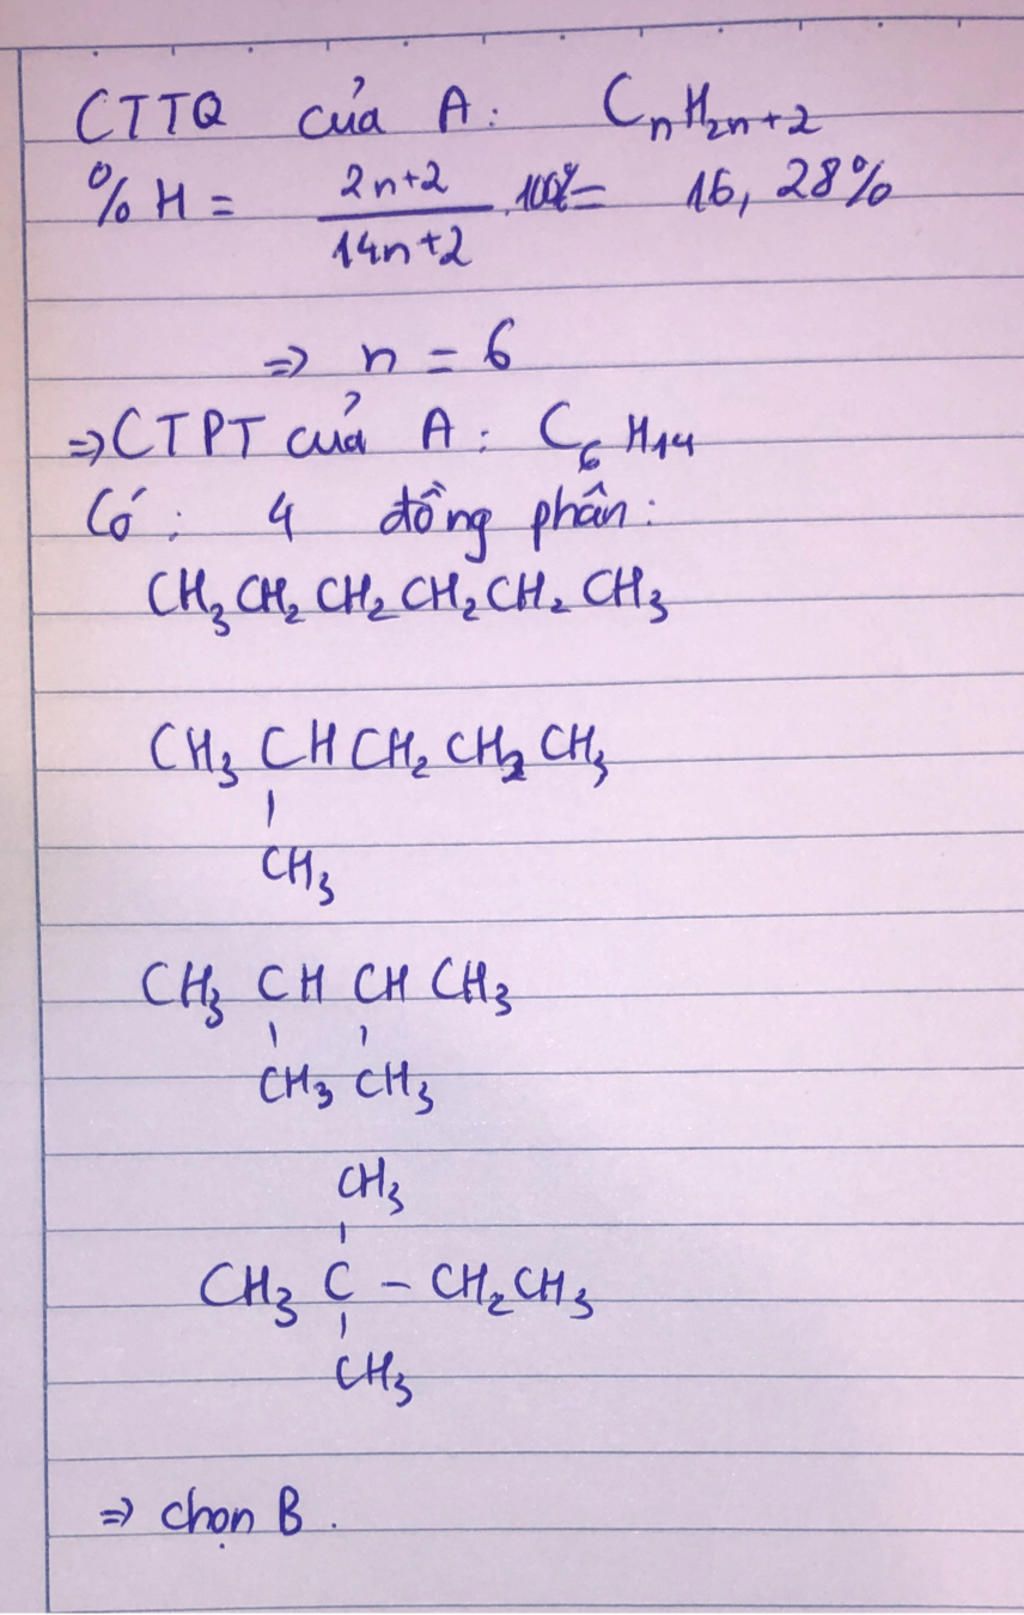 CTTQ của A: CnH2n+2
%H = 2n+2 / 14n+2 .100% = 16,28%
=> n = 6
=> CTPT của A: C6H14
Có: 4 đồng phân:
CH3CH2CH2CH2CH2CH3
CH3CHCH2CH2CH3
CH3
CH3 CH CH CH3
CH3 CH3
CH3
CH3 C - CH2CH3
CH3
=> chọn B.